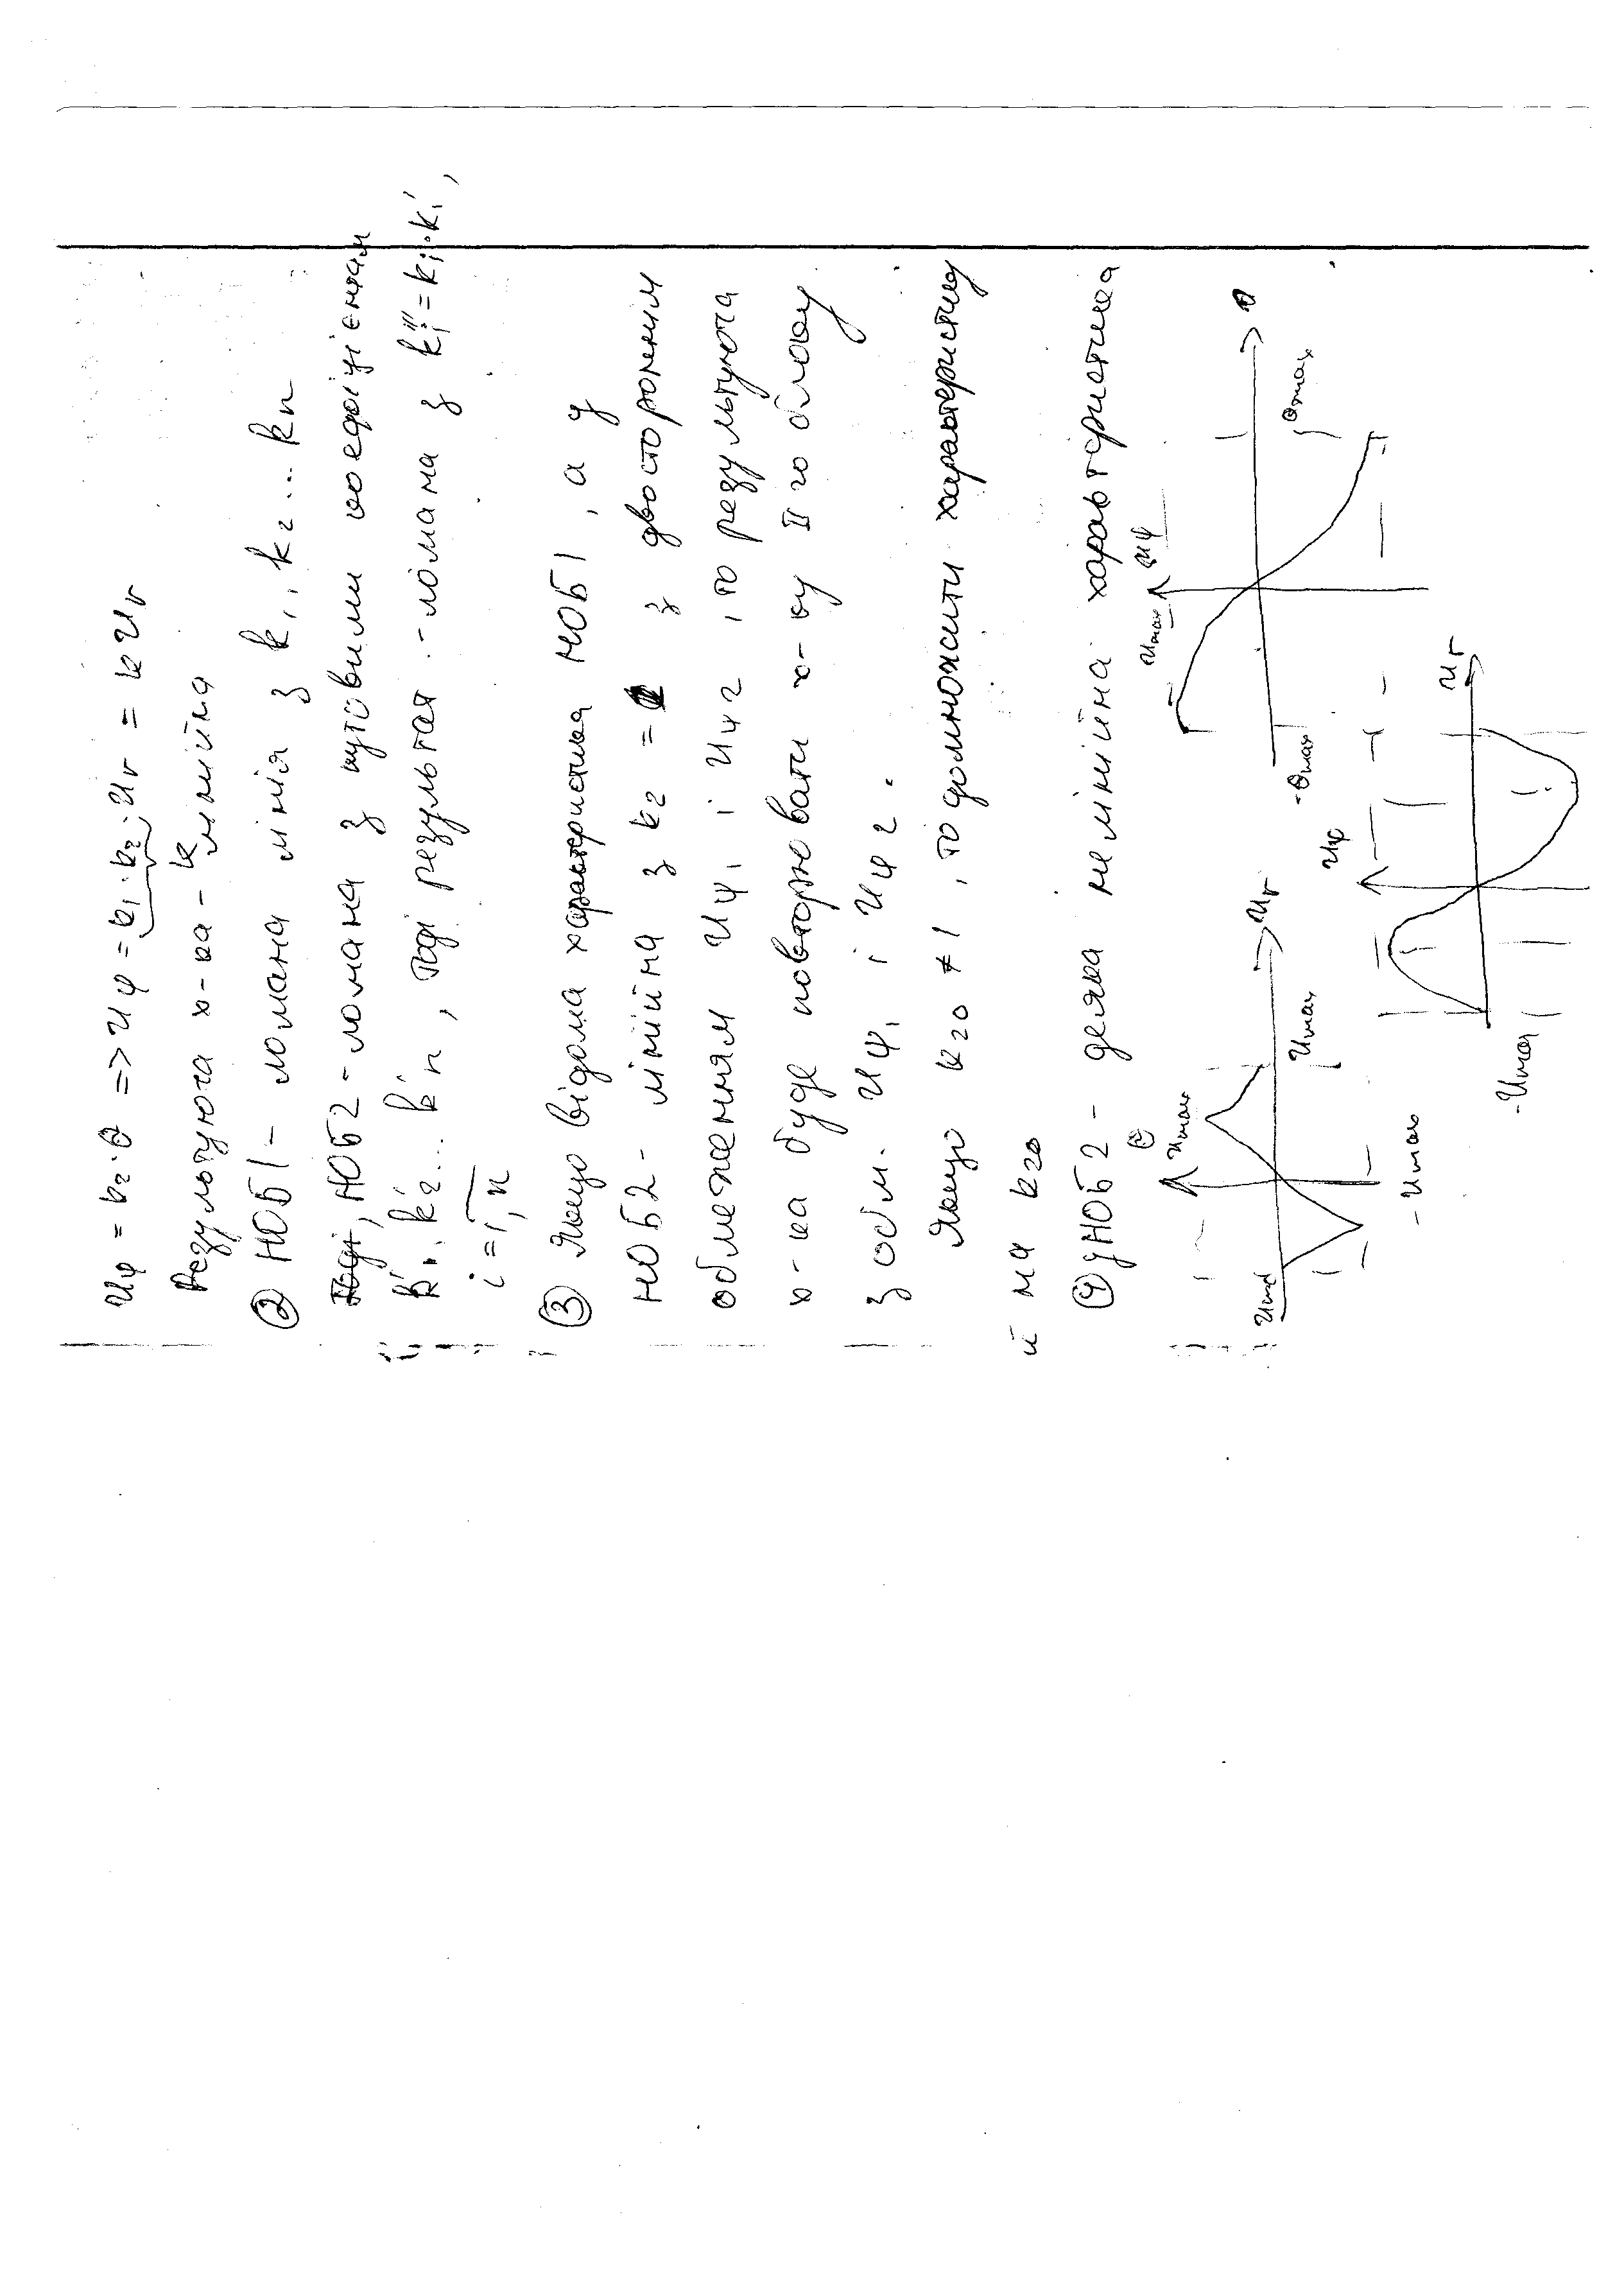 uφ = k₂·θ => uφ = k₁·k₂·uг = k uг
k
Результуюча х-ка - лінійна
② НОБ1 - ломана лінія з k₁, k₂ ... kn
НОБ2 - ломана з кутовими коефіцієнтам
k'₁, k'₂ ... k'n, тоді результая - ломана з kᵢ''' = kᵢ·kᵢ',
i = 1,n
③ Якщо відома характеристика НОБ1, а у
НОБ2 - лінійна з k₂ = з двостороннім
обмеженням uφ₁ і uφ2, то результуюча
х-ка буде повторювати х-ку II го блоку
з обм. uφ₁ і uφ2.
Якщо k₂₀ ≠ 1, то домножити характеристику
й на k₂₀
④ у НОБ2 - деяка нелінійна характеристика
θ
umax
uг
umax
- umax
uφ
umax
θ
θmax
-θmax
uφ
uг
-umax